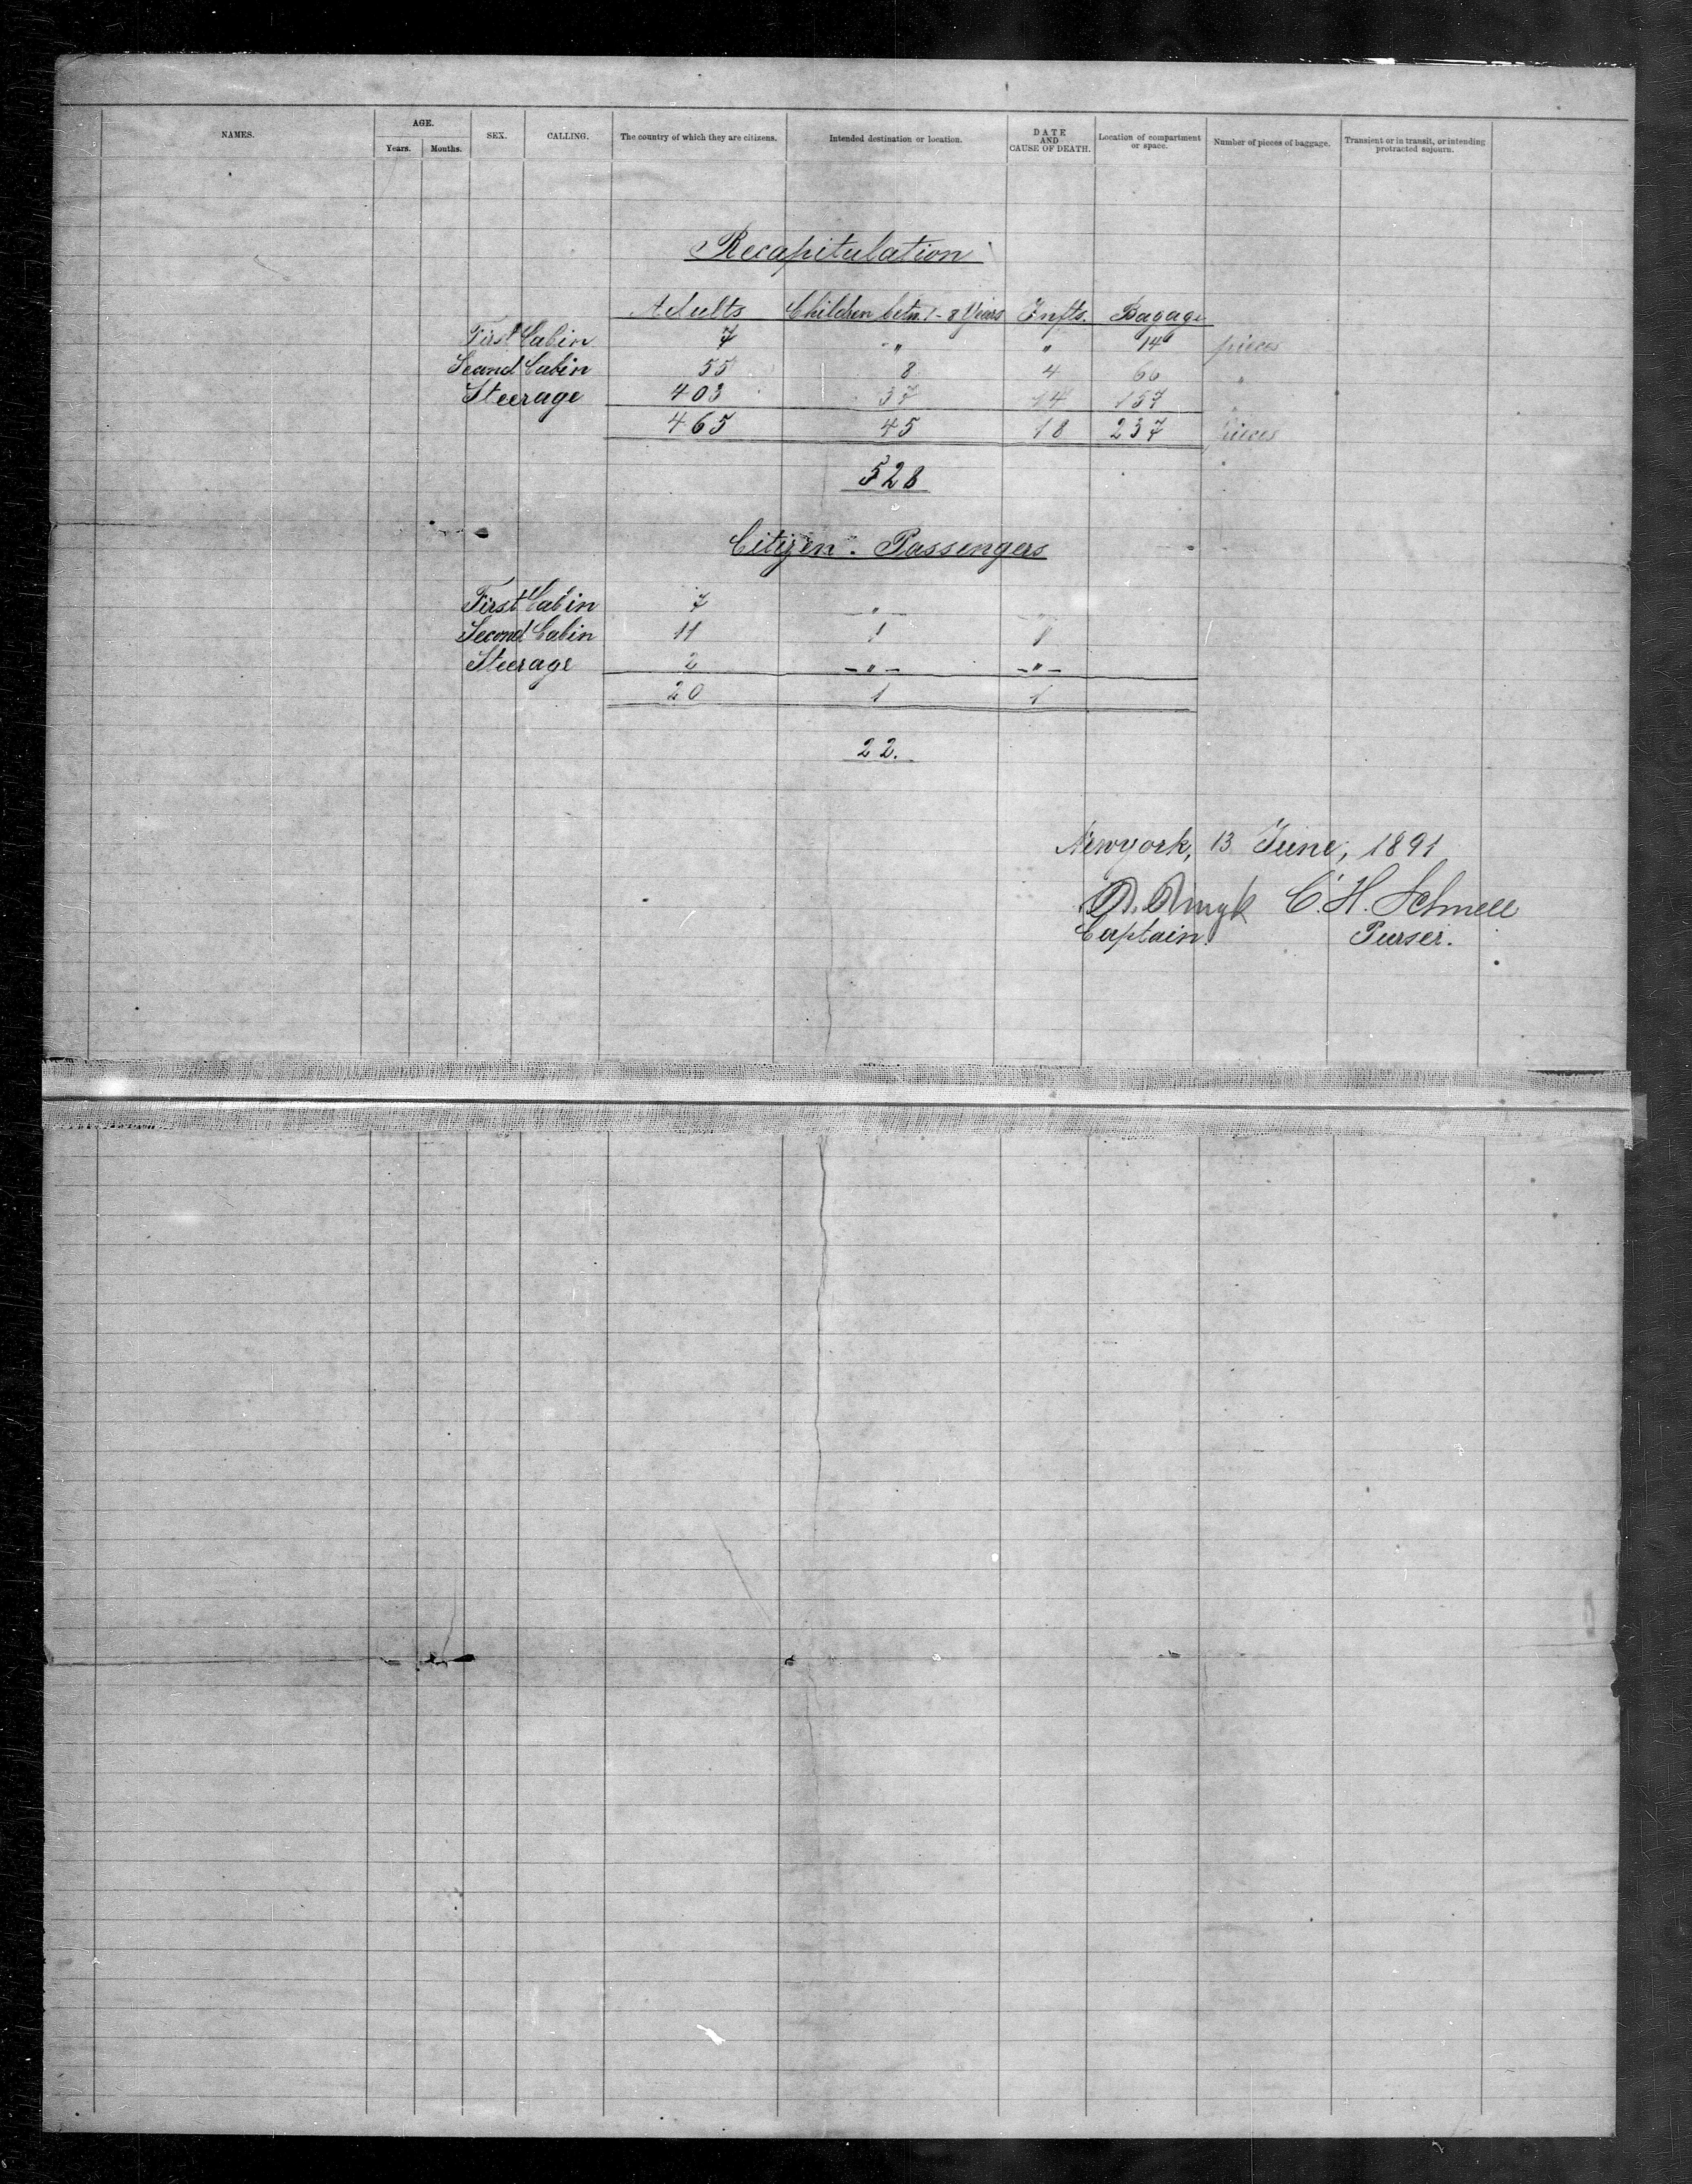 NAMES. AGE. SEX. CALLING. The country of which they are citizens. Intended destination or location. DATE AND CAUSE OF DEATH. Location of compartment or space. Number of pieces of baggage. Transient or in transit, or intending protracted sojourn.
Years. Months.
Recapitulation
Adults Children betw. 1-8 Years Infts. Bagage
First Cabin 7 " " 14 pieces
Second Cabin 55 8 4 66 "
Steerage 403 37 14 157 "
465 45 18 237 pieces
528
Citizen. Passengers
First Cabin 7 - " - - " -
Second Cabin 11 1 1
Steerage 2 - " - - " -
20 1 1
22.
Newyork, 13 June, 1891
C. H. Schnell
Captain. Purser.